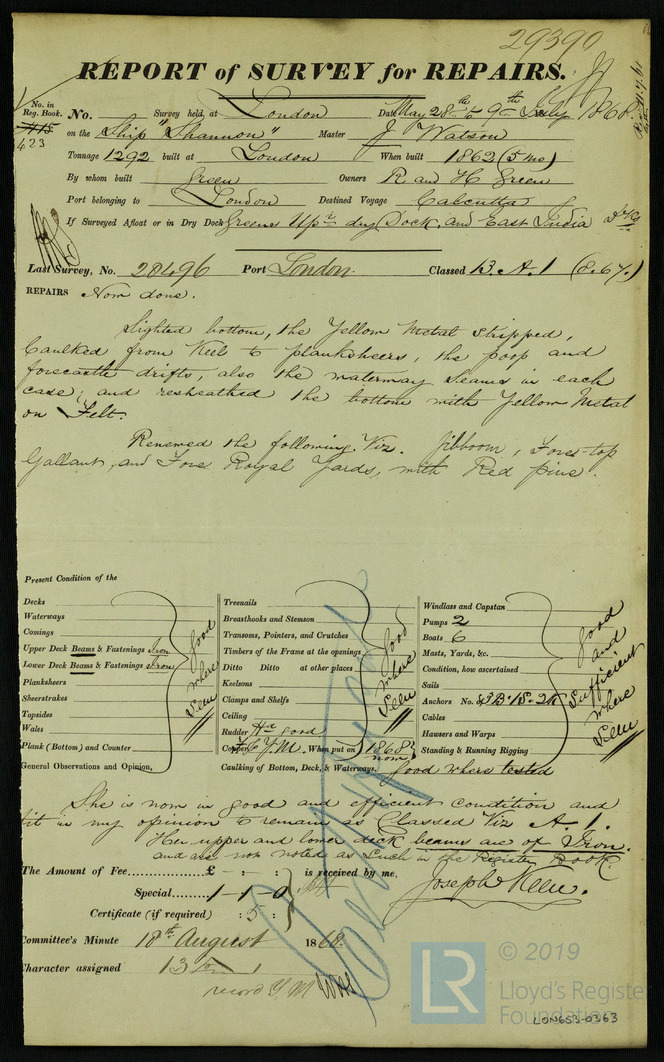 29390
REPORT of SURVEY for REPAIRS.
No. in Reg. Book. No. Survey held at London Date May 28th to 9th July 1868
423 on the Ship "Shannon" Master J Watson
Tonnage 1292 built at London When built 1862 (5 mo)
By whom built Green Owners R and H Green
Port belonging to London Destined Voyage Calcutta
If Surveyed Afloat or in Dry Dock Greens Upr dry Dock, and East India Dks
Last Survey, No. 28496 Port London. Classed 13. A. 1 (8.67.)
REPAIRS Now done.
Sighted bottom, the Yellow Metal Stripped,
Caulked from Keel to planksheers, the poop and
forecastle drifts, also the waterway Seams in each
case, and resheathed the bottom with Yellow Metal
on Felt.
Renewed the following Viz. Jibboom, Fore-top
Gallant, and Fore Royal Yards, with Red pine.
Present Condition of the
Decks
Waterways
Comings
Upper Deck Beams & Fastenings Iron
Lower Deck Beams & Fastenings Iron
Planksheers
Sheerstrakes
Topsides
Wales
Plank (Bottom) and Counter
good where Seen
General Observations and Opinion,
Treenails
Breasthooks and Stemson
Transoms, Pointers, and Crutches
Timbers of the Frame at the openings
Ditto Ditto at other places
Keelsons
Clamps and Shelfs
Ceiling
good where Seen
Rudder good
Copper Y.M. When put on 1868 now
Caulking of Bottom, Deck, & Waterways. good where tested
Windlass and Capstan
Pumps 2
Boats 6
Masts, Yards, &c.
Condition, how ascertained
Sails
Anchors No. of 3B. 1S. 2K
Cables
Hawsers and Warps
Standing & Running Rigging
good and Sufficient where Seen
She is now in good and efficient condition and
fit in my opinion to remain as Classed Viz A. 1.
Her upper and lower deck beams are of Iron.
and are not noted as Such in the Register Book.
The Amount of Fee £ - : - : is received by me,
Special 1 - 1 - 0
Joseph Keen.
Certificate (if required) : 5 :
Committee's Minute 18th August 1868.
Character assigned 13 1
record Y M
LR
© 2019
Lloyd's Register
Foundation
LON653-0363